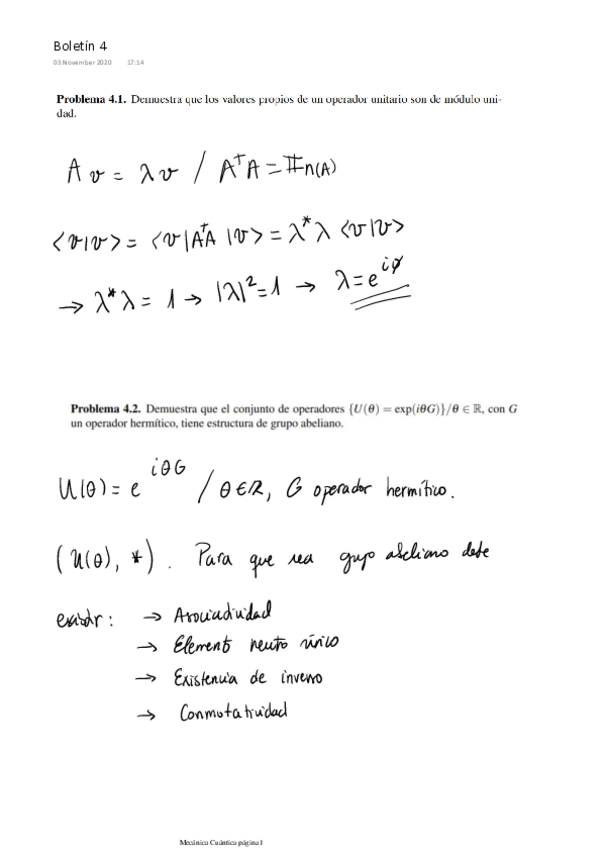 Boletín 4
03 November 2020 17:14
Problema 4.1. Demuestra que los valores propios de un operador unitario son de módulo uni-
dad.
A v = λ v / A†A = 𝕀n(A)
<v|v> = <v|A†A |v> = λ*λ <v|v>
→ λ*λ = 1 → |λ|²=1 → λ=e^{iφ}
Problema 4.2. Demuestra que el conjunto de operadores {U(θ) = exp(iθG)}/θ ∈ ℝ, con G
un operador hermítico, tiene estructura de grupo abeliano.
U(θ) = e^{iθG} / θ∈ℝ, G operador hermítico.
(U(θ), *). Para que sea grupo abeliano debe
existir: → Asociatividad
→ Elemento neutro único
→ Existencia de inverso
→ Conmutatividad
Mecánica Cuántica página 1